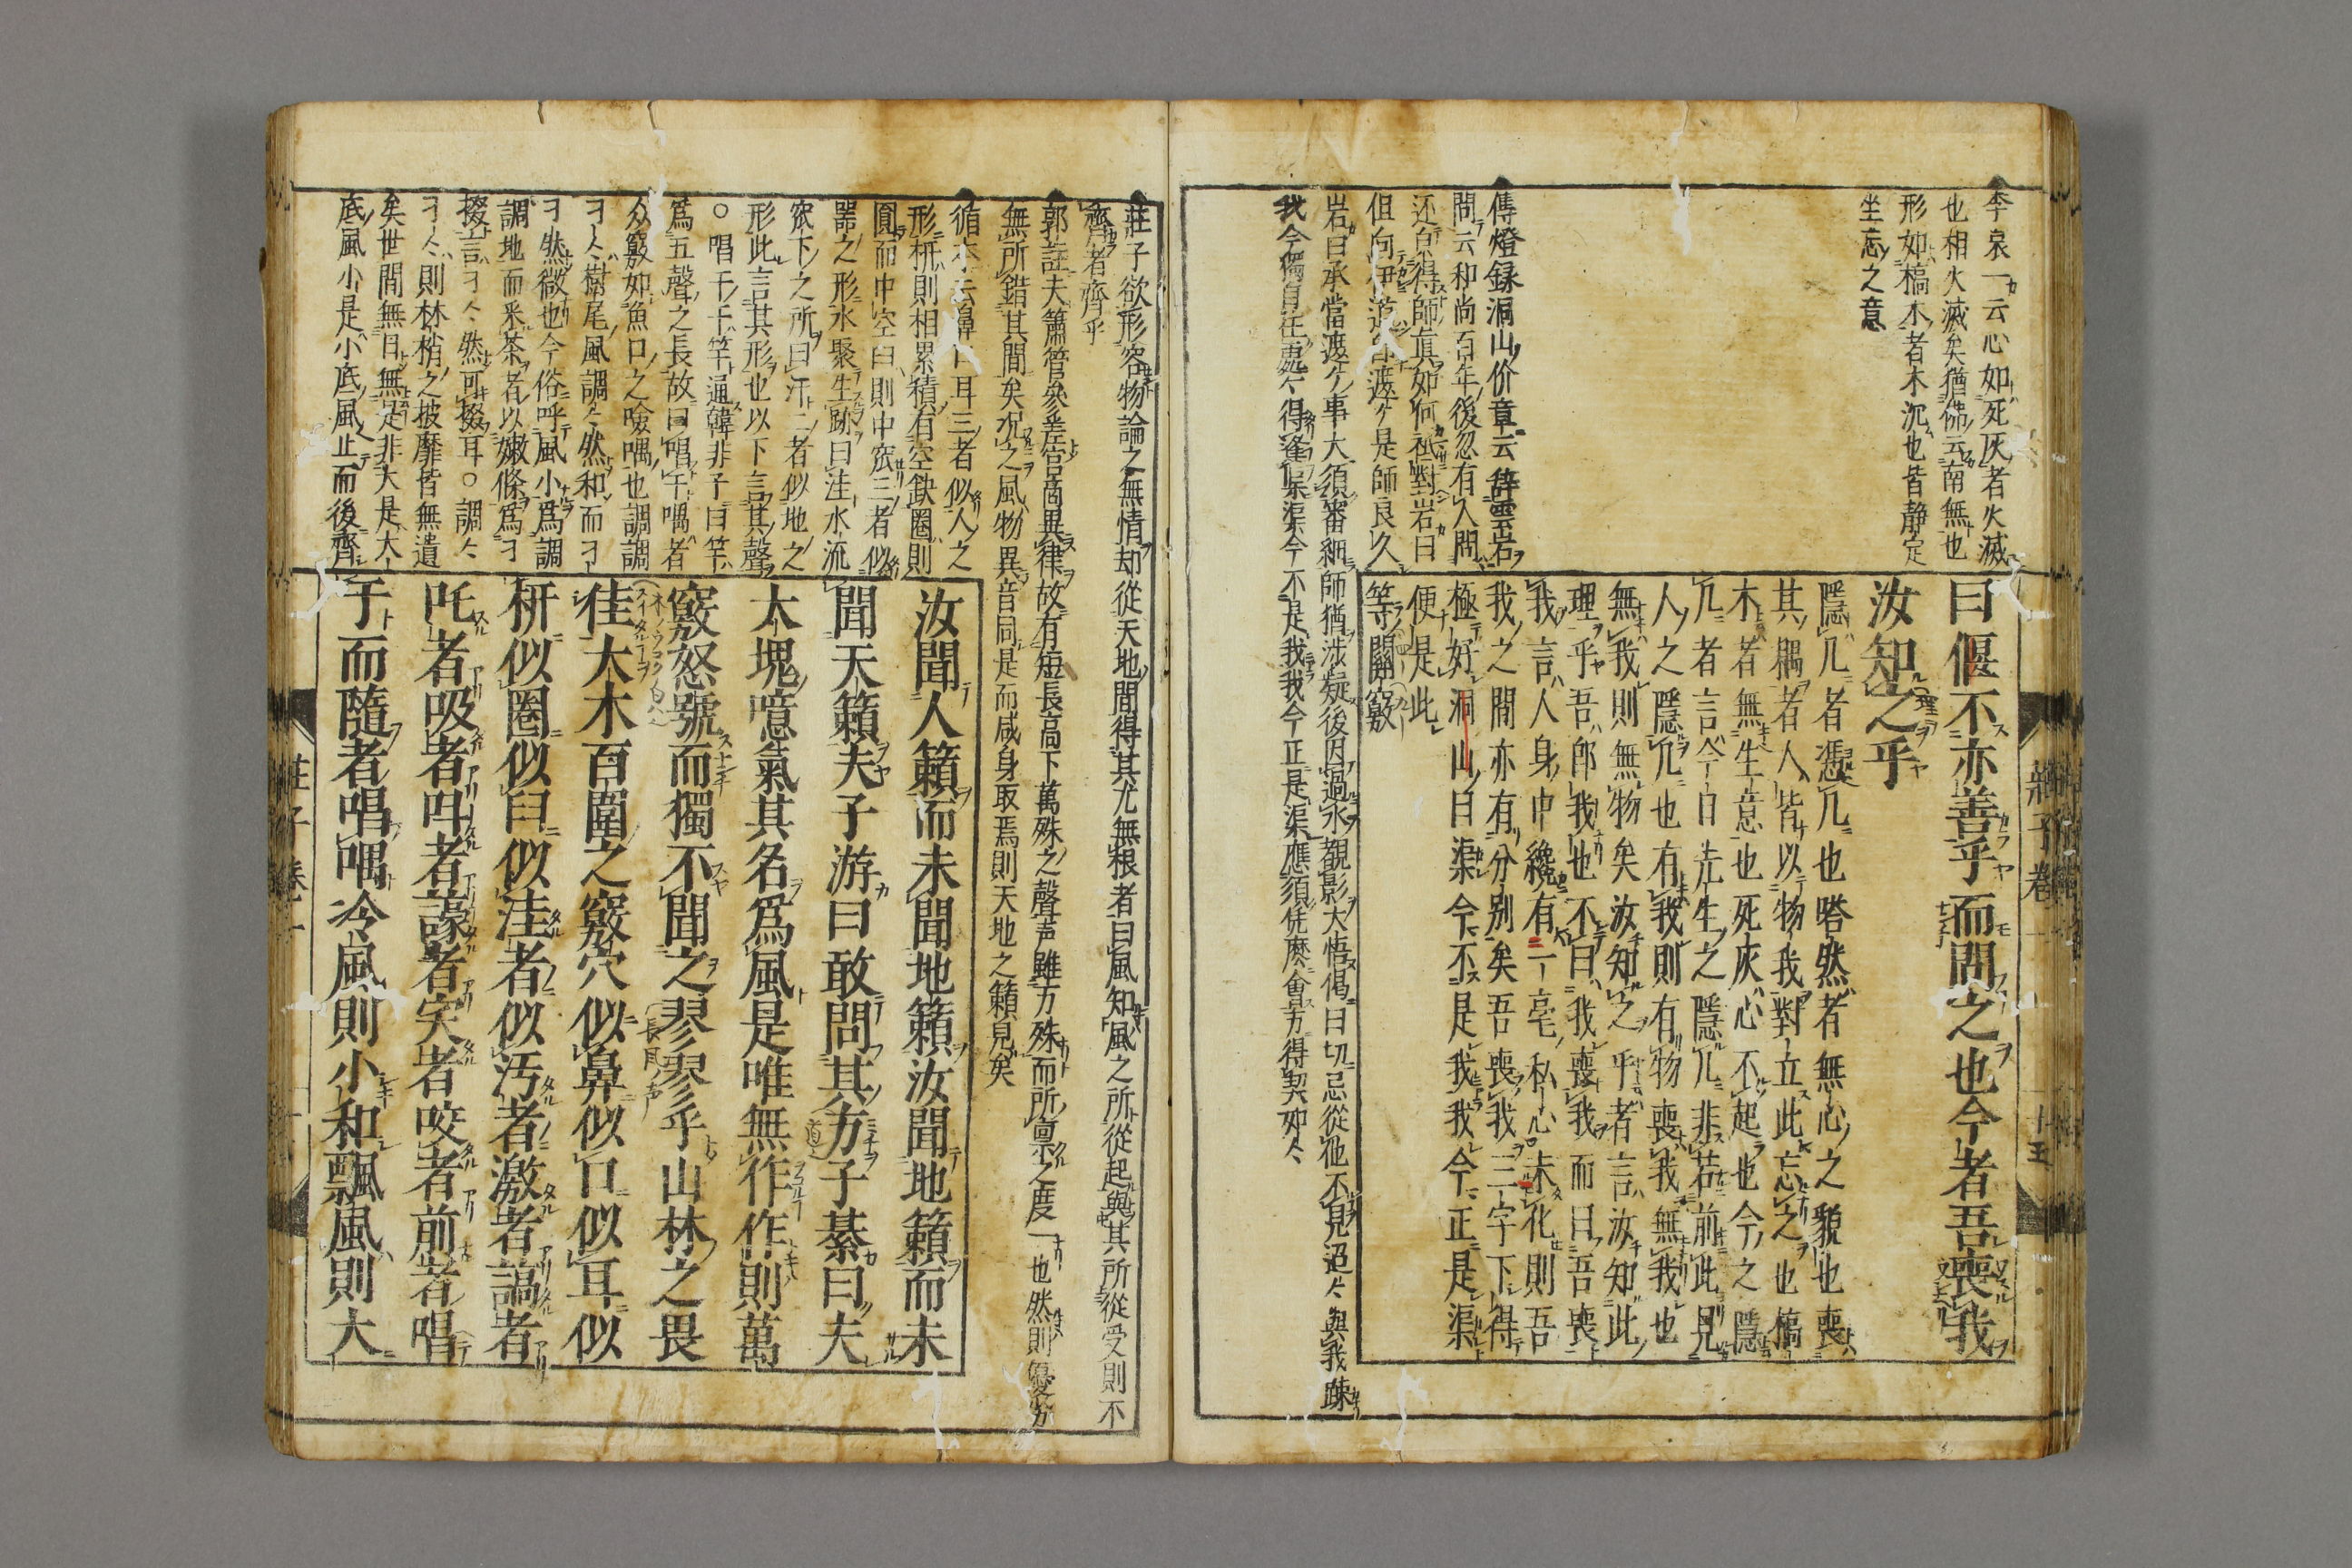 李衷一云心如死灰者火滅
也相火滅矣猶佛云南無也
形如槁木者木沉也皆静定
坐忘之意
傳燈録洞山价章云辞雲岩
問云和尚百年後忽有人問
还㒵得師真如何祗對岩曰
但向伊道即這ケ是師良久
岩曰承當這ケ事大須審細師猶渉疑後因過水覩影大悟偈曰切忌從他不見迢々與我疎
我今獨自往處々得逢渠渠今不是我我今正是渠應須恁麽會方得契如々
曰偃不亦善乎而問之也今者吾喪我
汝知之乎
隱几者憑几也嗒然者無心之貌也喪
其耦者人皆以物我對立此忘之也槁
木者無生意也死灰心不起也今之隱
几者言今日先生之隱几非若前此見
人之隱几也有我則有物喪我無我也
無我則無物矣汝知之乎者言汝知此
理乎吾即我也不曰我喪我而曰吾喪
我言人身中纔有一毫私心未化則吾
我之間亦有分别矣吾喪我三字下得
極好洞山曰渠今不是我我今正是渠
便是此
等關竅
莊子卷一
十五
莊子欲形容物論之無情却從天地間得其尤無根者曰風知風之所從起與其所從受則不
齊者齊乎
郭註夫簫管參差宮商異律故有短長高下萬殊之聲声雖万殊而所禀之度一也然則優劣
無所錯其間矣况之風物異音同是而咸身取焉則天地之籟見矣
循本云鼻口耳三者似人之
形枅則相累積有空缺圈則
圓而中空臼則中窊三者似
噐之形水聚生跡曰洼水流
窊下之所曰汙二者似地之
形此言其形也以下言其聲
○唱于于竽通韓非子曰竽
為五聲之長故曰唱于喁者
众竅如魚口之噞喁也調調
刁々樹尾風調々然和而刁
刁然微也今俗呼風小為調
調地而釆茶者以嫩條為刁
掇言刁々然可掇耳○調々
刁々則林梢之披靡皆無遺
矣世間無日無是非大是大
底風小是小底風止而後齊
汝聞人籟而未聞地籟汝聞地籟而未
聞天籟夫子游曰敢問其方子綦曰夫
大塊噫氣其名為風是唯無作作則萬
竅怒號而獨不聞之翏翏乎山林之畏
佳大木百圍之竅穴似鼻似口似耳似
枅似圈似臼似洼者似汚者激者謞者
叱者吸者叫者譹者宎者咬者前者唱
于而隨者唱喁冷風則小和飄風則大
莊子卷一